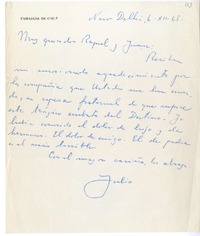 EMBAJADA DE CHILE
New Delhi, 6-XII-68.
Muy queridos Raquel y Juan:
Reciban
mi emocionado agradecimiento por
la compañía que Ustedes me han
esta expresa fraternal de que
este trágico embate del Destino. Ya
había conocido el dolor de hijo y de
hermano. El dolor de amigo. El de padre
es el más terrible.
Con el mayor cariño, los abraza
Julio